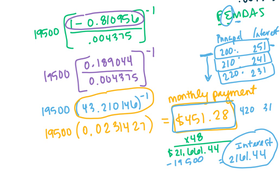 19500 [1 - 0.810956 / .004375]^-1
PEMDAS
Principal Interest
200. 251
210. 241
220. 231
19500 [0.189044 / 0.004375]^-1
monthly payment
19500 (43.210146)^-1
= $451.28
420 31
19500 (0.0231427)
x48
$21,661.44
-19500
Interest
2161.44